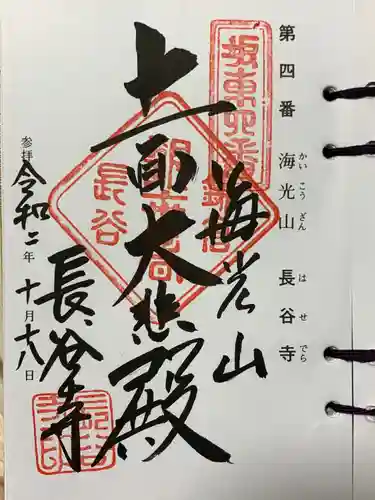 第四番 海光山 長谷寺
かいこうざん はせでら
坂東四番
海光山
十一面大悲殿
長谷
長谷寺
参拝 令和二年 十月十八日